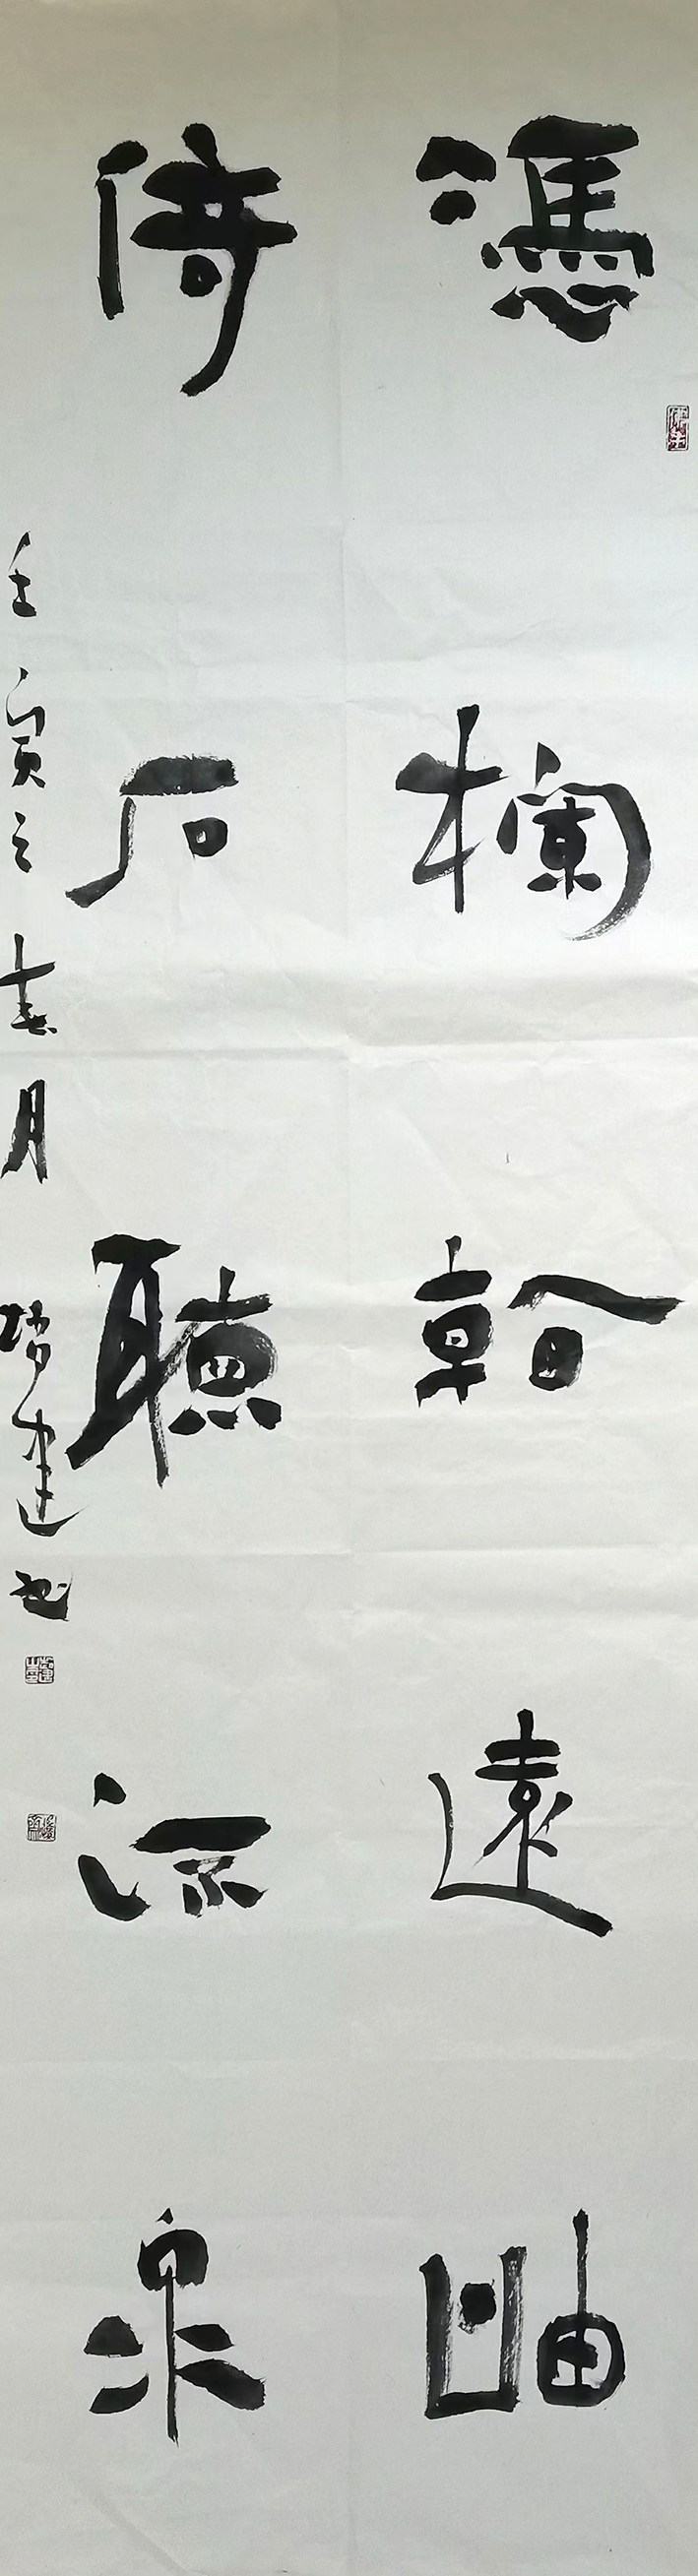 憑欄看遠岫
倚石聽流泉
壬寅之春月 建书